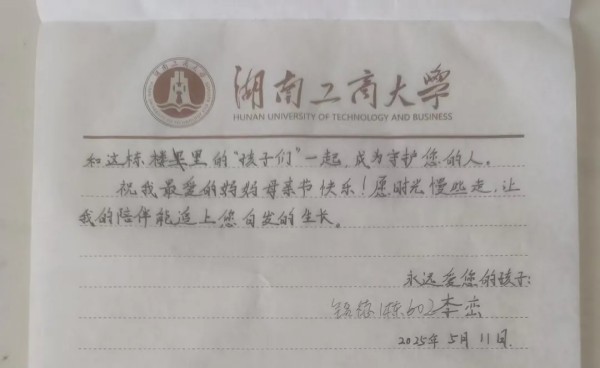 湖南工商大学
HUNAN UNIVERSITY OF TECHNOLOGY AND BUSINESS
和这栋楼里的“孩子们”一起,成为守护您的人。
祝我最爱的妈妈母亲节快乐!愿时光慢些走,让
我的陪伴能追上您白发的生长。
永远爱您的孩子:
602李峦
2025年5月11日.